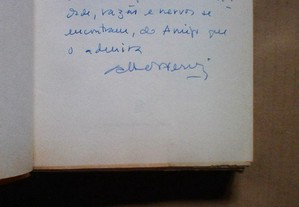 dade, razão e nervos se
encontram, do Amigo que
o admira